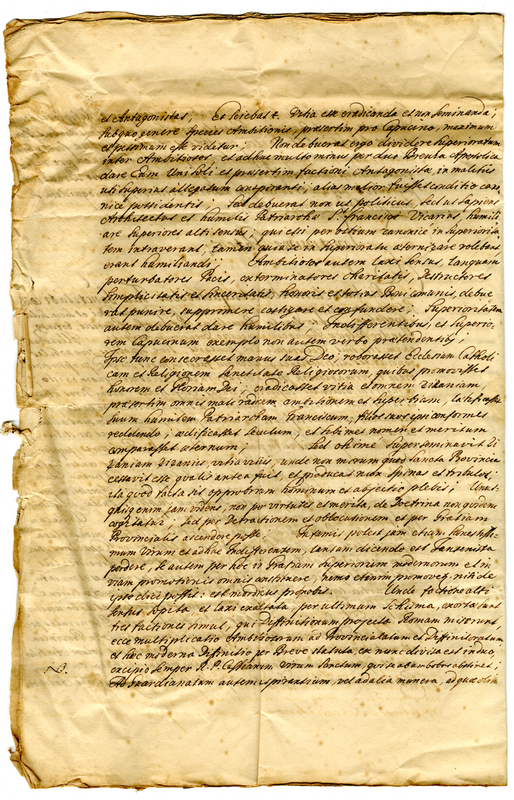 et Antagonistas; et sciebas 4. Vitia esse eradicanda et non seminanda;
sub quo genere species Ambitionis, præsertim pro Capucino, maximum
et pessimum esse videtur; Non debueras ergo dividere superioratum
inter Ambitiosos, et adhuc multo minus per duo Brevia Apostolica
dare eum uni soli et præsertim factioni Antagonistæ in malitiis
ubi superius allegatum conspiranti, alias melior fuisset conditio cano
nice possidentis; sed debueras non ut politicus, sed ut sapiens
Architectus et humilis Patriarchæ S. Francisci Vicarius humili
are superiores altisensus, qui etsi per betium canonice in superiorita
tem intraverant, tamen quia se in superioratu æternizare volebant
erant humiliandi; Ambitiosos autem laxi sensus, tanquam
perturbatores Pacis, exterminatores charitatis, destructores
simplicitatis et sinceritatis, honoris et totius Boni communis, debue
ras punire, supprimere castigare et confundere; Superioritatem
autem debueras dare humilibus, Indifferentibus, et superio
rem Capucinum exemplo non autem verbo prætendentibus;
Ipse tunc consecrasses manus tuas Deo; roborasses Ecclesiam Catholi
cam et Religionem sanctitate Religiosorum, quibus promovisses
honorem et gloriam Dei; eradicasses vitia et omnem zizaniam
præsertim omnis mali radicem ambitionem et superbiam, lætificasses
suum humilem Patriarcham Franciscum, filios suos ipsi conformes
reddendo; ædificasses seculum, et tibimet nomen et meritum
comparasses æternum; sed ohime superseminavit Zi
zaniam zizaniis, vitia vitiis, unde non mirum quod sancta Provincia
cessavit esse qualis antea fuit, et producat nunc spinas et tribulos;
ita quod facta sit opprobrium hominum et abjectio plebis; Unus
quisque enim jam videns, non per virtutes et merita, de Doctrina non quidem
cogitatur, sed per Detractionem et oblocutionem et per gratiam
Provincialis ascendere posse. Infamis potest jam etiam honestissi
mum Virum et adhuc Indifferentem, tantum dicendo est Jansenista
perdere, se autem per hoc in gratiam superiorum modernorum et in
viam promotionis omnis constituere, nemo etenim promovetur nisi de
ipso dici possit: est mordicus propositi. Unde factione alti
sensus sopita et laxi exaltata per ultimum schisma, exortæ sunt
tres factiones simul, qui Diffinitionum projecta Romam miserunt,
ecce multiplicatio Ambitiosorum ad Provincialatum et Diffinitoratum
et hæc moderna Diffinitio per Breve statuta ex nunc divisa est in duo,
excipio semper R. P. Cassianum Virum sanctum, qui in causa ob hoc abstinet;
NB. Ad guardianatum autem aspirantium, vel ad alia munera, ad quæ olim